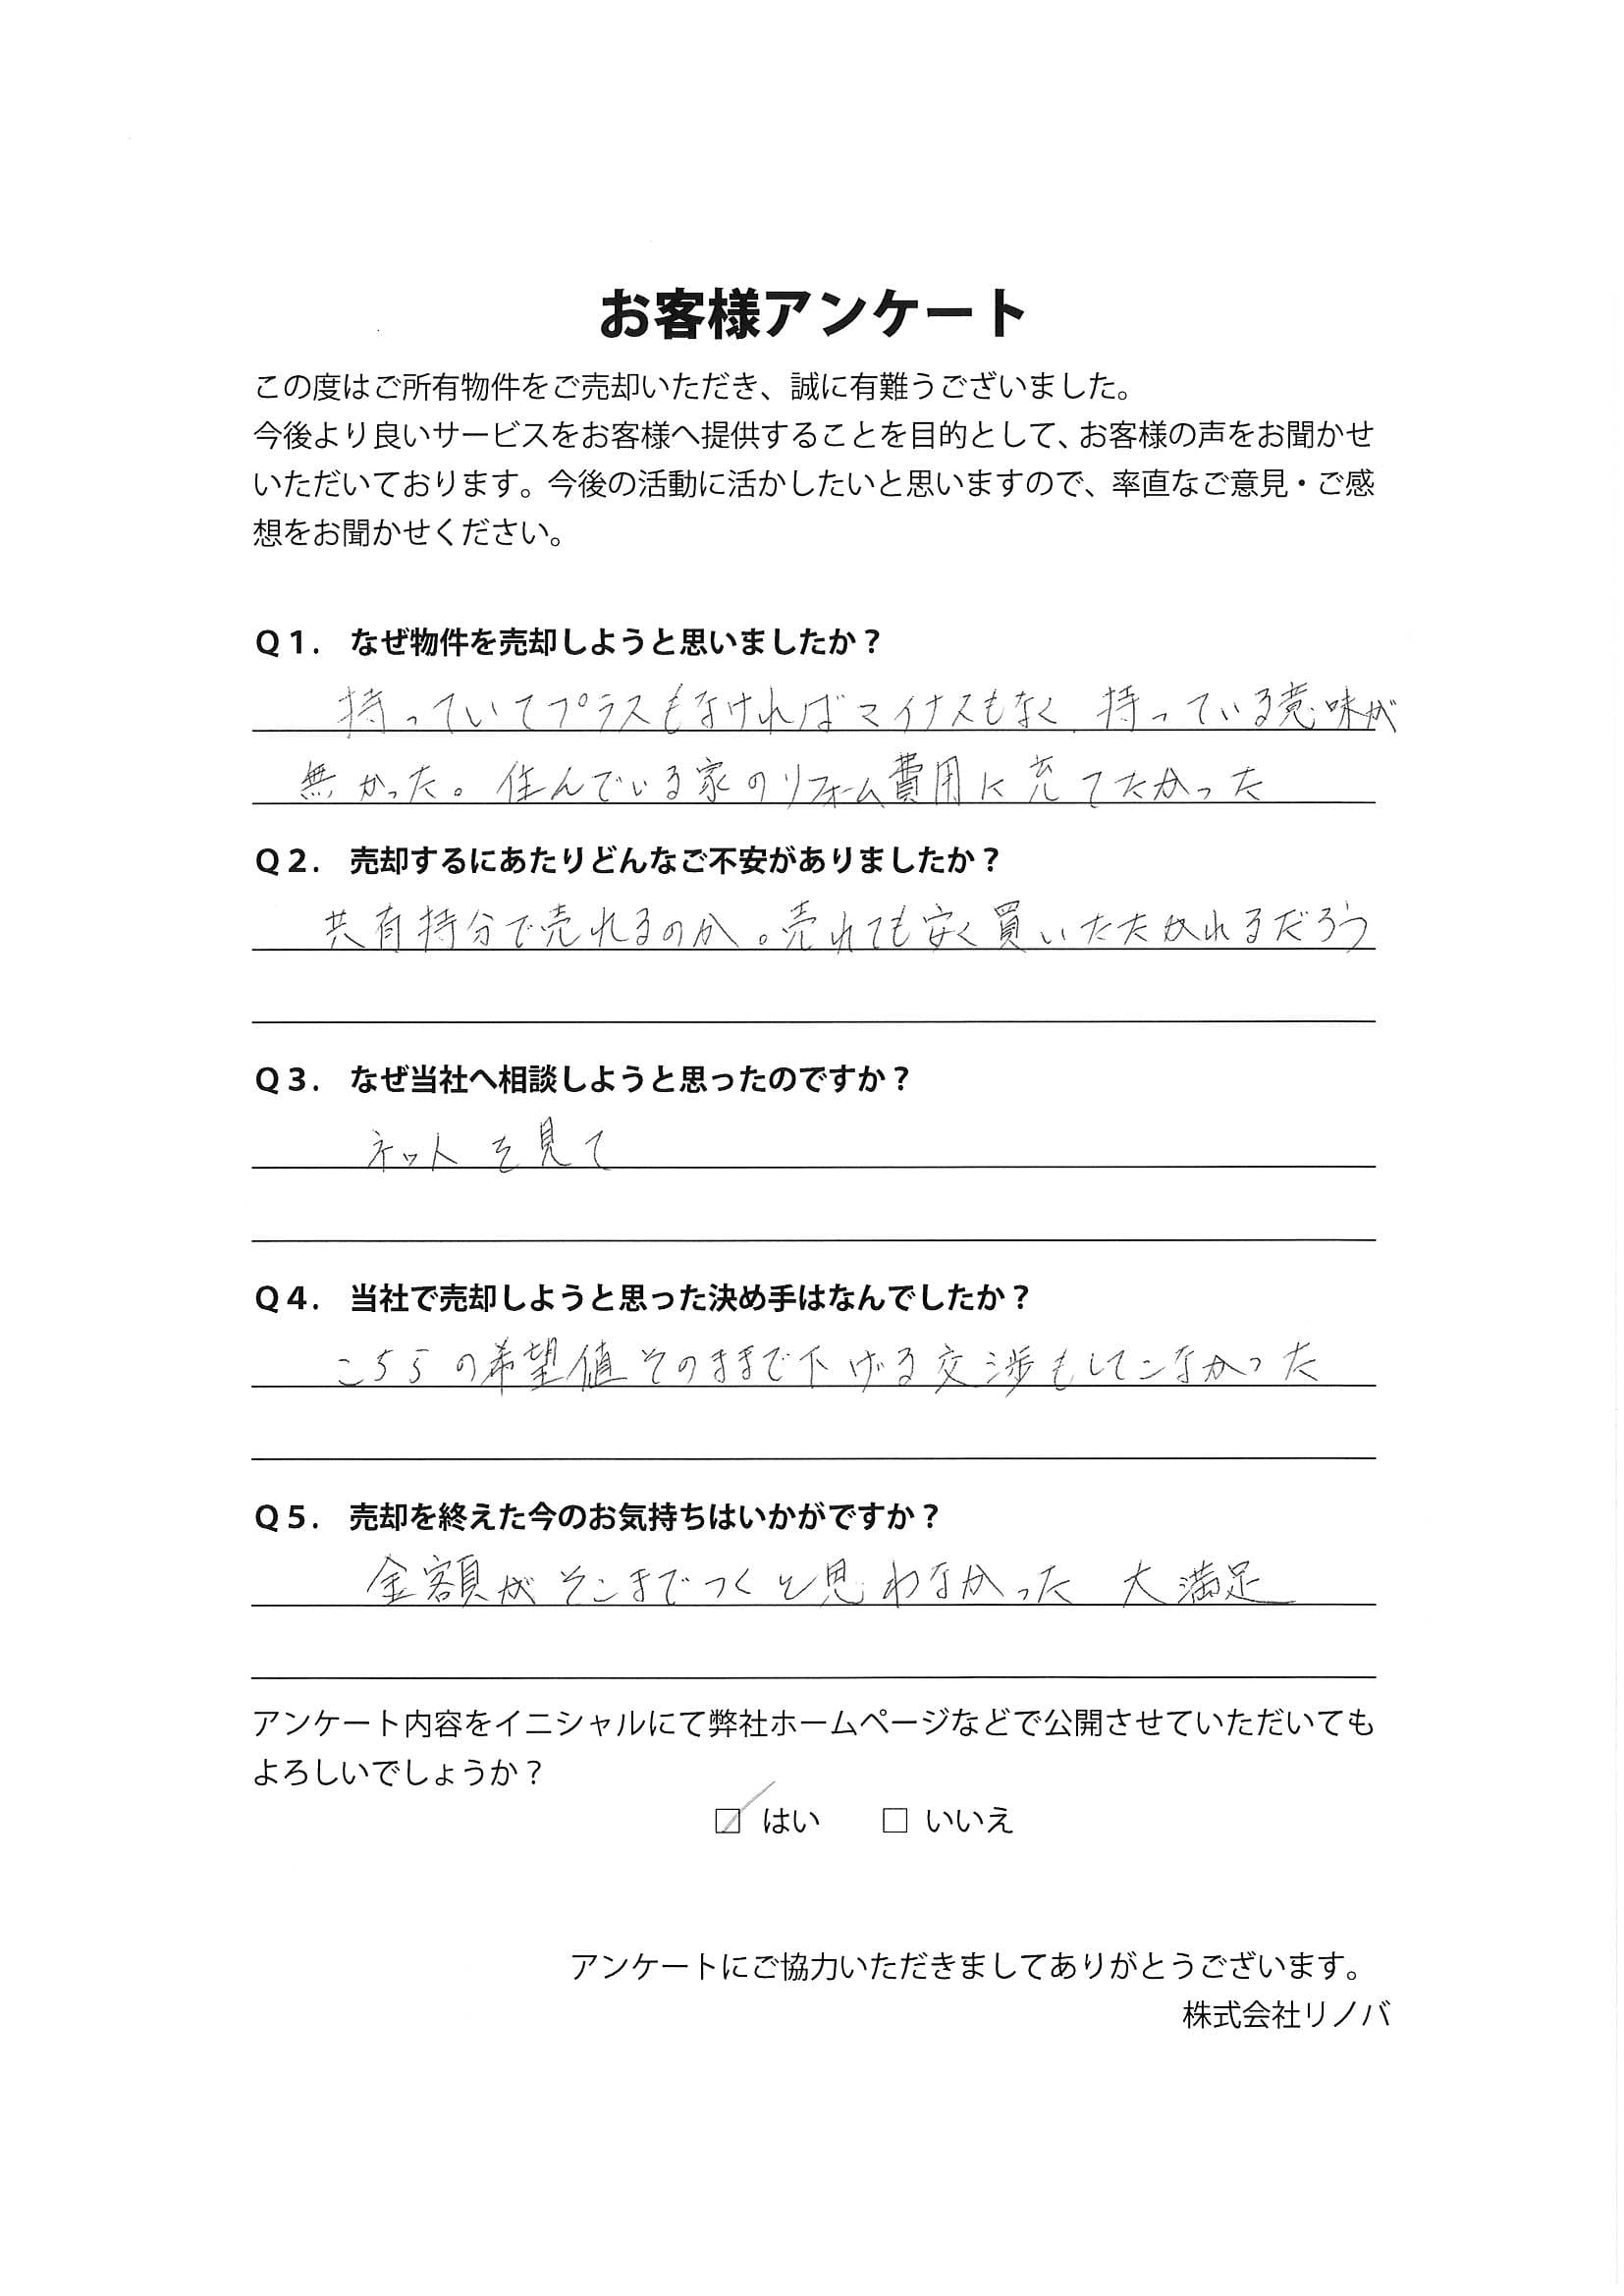 お客様アンケート
この度はご所有物件をご売却いただき、誠に有難うございました。
今後より良いサービスをお客様へ提供することを目的として、お客様の声をお聞かせ
いただいております。今後の活動に活かしたいと思いますので、率直なご意見・ご感
想をお聞かせください。
Q1. なぜ物件を売却しようと思いましたか？
持っていてプラスもなければマイナスもなく、持っている意味が
無かった。住んでいる家のリフォーム費用に充てたかった
Q2. 売却するにあたりどんなご不安がありましたか？
共有持分で売れるのか。売れても安く買いたたかれるだろう
Q3. なぜ当社へ相談しようと思ったのですか？
ネットを見て
Q4. 当社で売却しようと思った決め手はなんでしたか？
こちらの希望値そのままで下げる交渉もしてこなかった
Q5. 売却を終えた今のお気持ちはいかがですか？
金額がそこまでつくと思わなかった 大満足
アンケート内容をイニシャルにて弊社ホームページなどで公開させていただいても
よろしいでしょうか？
☑ はい □ いいえ
アンケートにご協力いただきましてありがとうございます。
株式会社リノバ